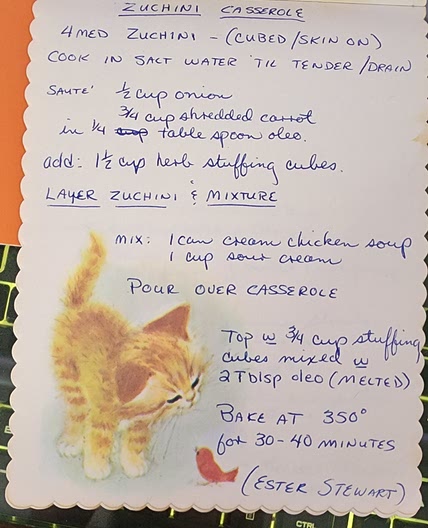 ZUCHINI CASSEROLE
4 MED ZUCHINI - (CUBED/SKIN ON)
COOK IN SALT WATER 'TIL TENDER/DRAIN
SAUTE' ½ cup onion
¾ cup shredded carrot
in ¼ cup table spoon oleo.
add: 1½ cup herb stuffing cubes.
LAYER ZUCHINI & MIXTURE
MIX: 1 can cream chicken soup
1 cup sour cream
POUR OVER CASSEROLE
TOP w ¾ cup stuffing
cubes mixed w
2 Tblsp oleo (MELTED)
BAKE AT 350°
for 30-40 MINUTES
(ESTER STEWART)
CTRL